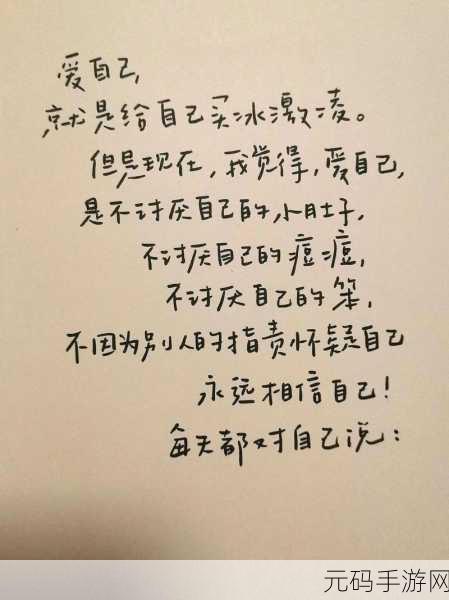 爱自己,
就是给自己买冰激凌。
但是现在,我觉得,爱自己,
是不讨厌自己的小肚子,
不讨厌自己的痘痘,
不讨厌自己的笨,
不因为别人的指责怀疑自己
永远相信自己!
每天都对自己说:
元码手游网